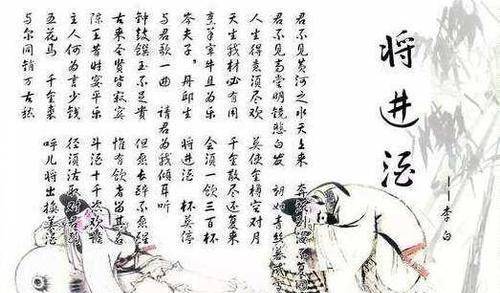 将进酒
——李白
君不见黄河之水天上来 奔流到海不复回
君不见高堂明镜悲白发 朝如青丝暮成
人生得意须尽欢 莫使金樽空对月
天生我材必有用 千金散尽还复来
烹羊宰牛且为乐 会须一饮三百杯
岑夫子，丹邱生 将进酒 杯莫停
与君歌一曲 请君为我倾耳听
钟鼓馔玉不足贵 但愿长醉不愿醒
古来圣贤皆寂寞 惟有饮者留其名
陈王昔时宴平乐 斗酒十千恣欢谑
主人何为言少钱 径须沽取对君酌
五花马 千金裘 呼儿将出换美酒
与尔同销万古愁